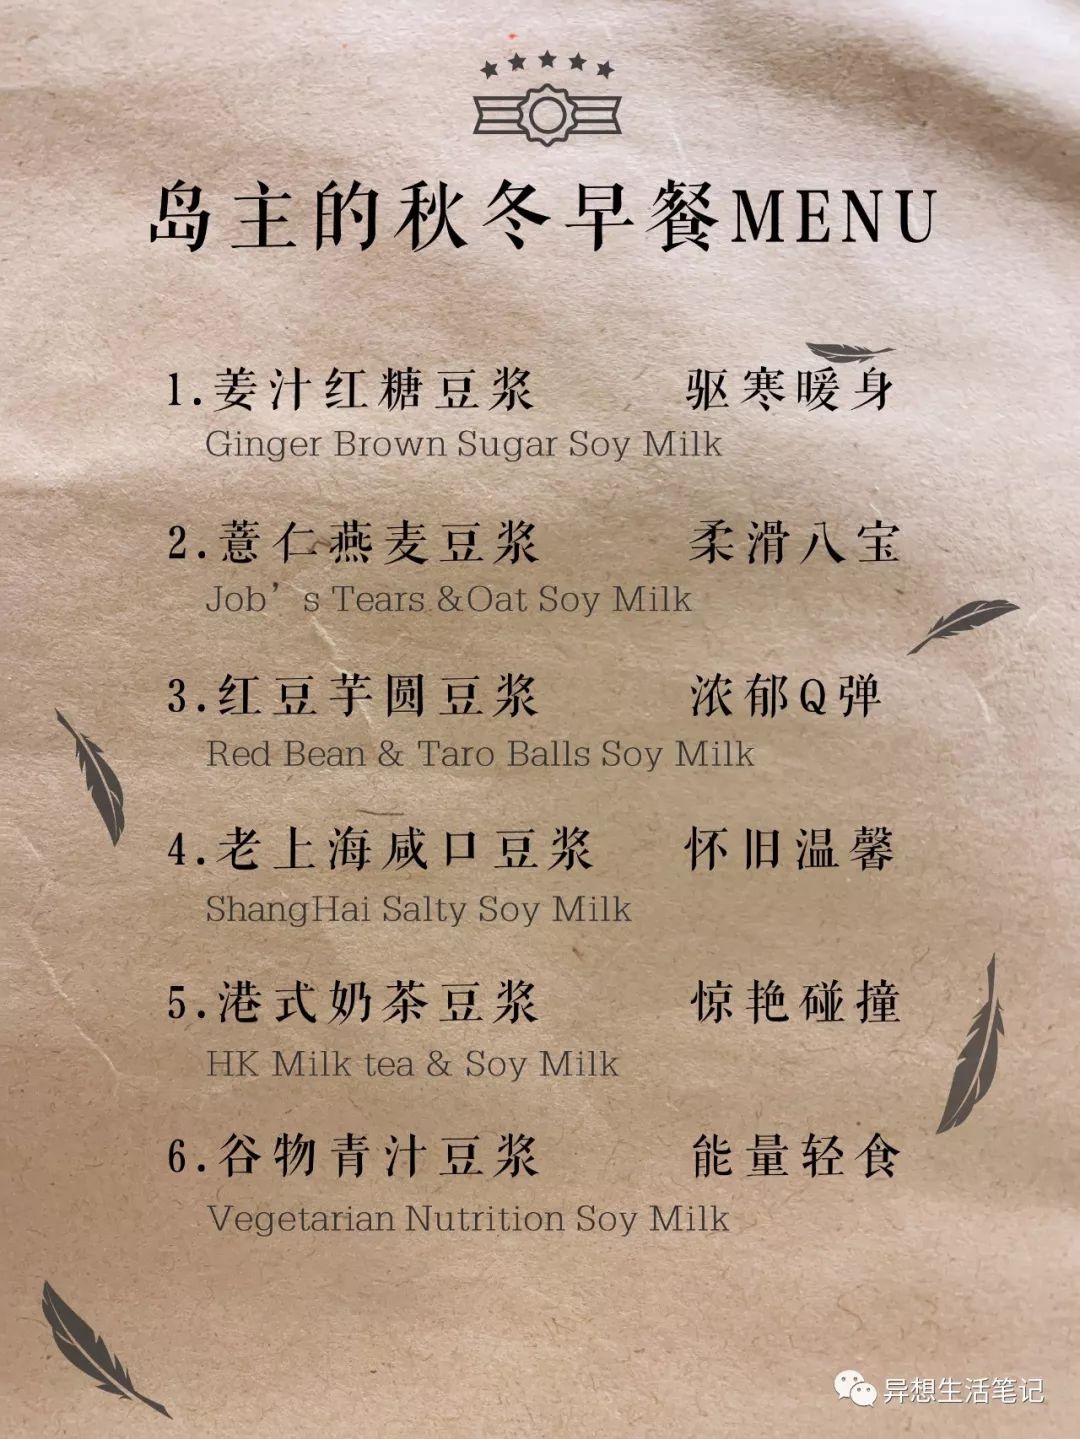 岛主的秋冬早餐MENU
1.姜汁红糖豆浆 驱寒暖身
Ginger Brown Sugar Soy Milk
2.薏仁燕麦豆浆 柔滑八宝
Job’s Tears &Oat Soy Milk
3.红豆芋圆豆浆 浓郁Q弹
Red Bean & Taro Balls Soy Milk
4.老上海咸口豆浆 怀旧温馨
ShangHai Salty Soy Milk
5.港式奶茶豆浆 惊艳碰撞
HK Milk tea & Soy Milk
6.谷物青汁豆浆 能量轻食
Vegetarian Nutrition Soy Milk
异想生活笔记